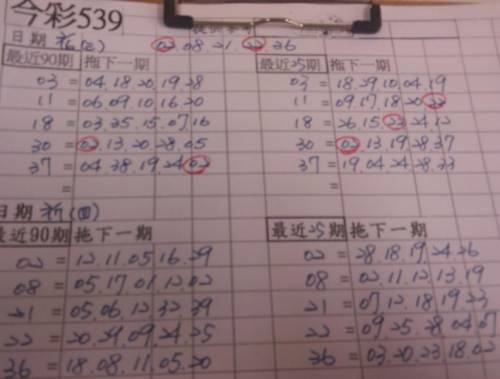 今彩539
日期 02.08.21 22.36
最近90期 拖下一期 最近25期 拖下一期
03 = 04.18.20.19.28 03 = 18.29.10.04.19
11 = 06.09.10.16.20 11 = 09.17.18.20.22
18 = 03.25.15.07.16 18 = 26.15.22.24.12
30 = 02.13.20.28.05 30 = 02.13.19.28.37
37 = 04.38.19.24.02 37 = 19.04.24.28.33
= =
日期
最近90期 拖下一期 最近25期 拖下一期
02 = 12.11.05.16.29 02 = 28.18.19.24.26
08 = 05.17.01.12.02 08 = 02.11.12.13.19
21 = 05.06.12.32.39 21 = 07.12.18.19.23
22 = 20.29.09.24.25 22 = 09.25.28.04.07
36 = 18.08.11.05.20 36 = 03.20.23.18.02